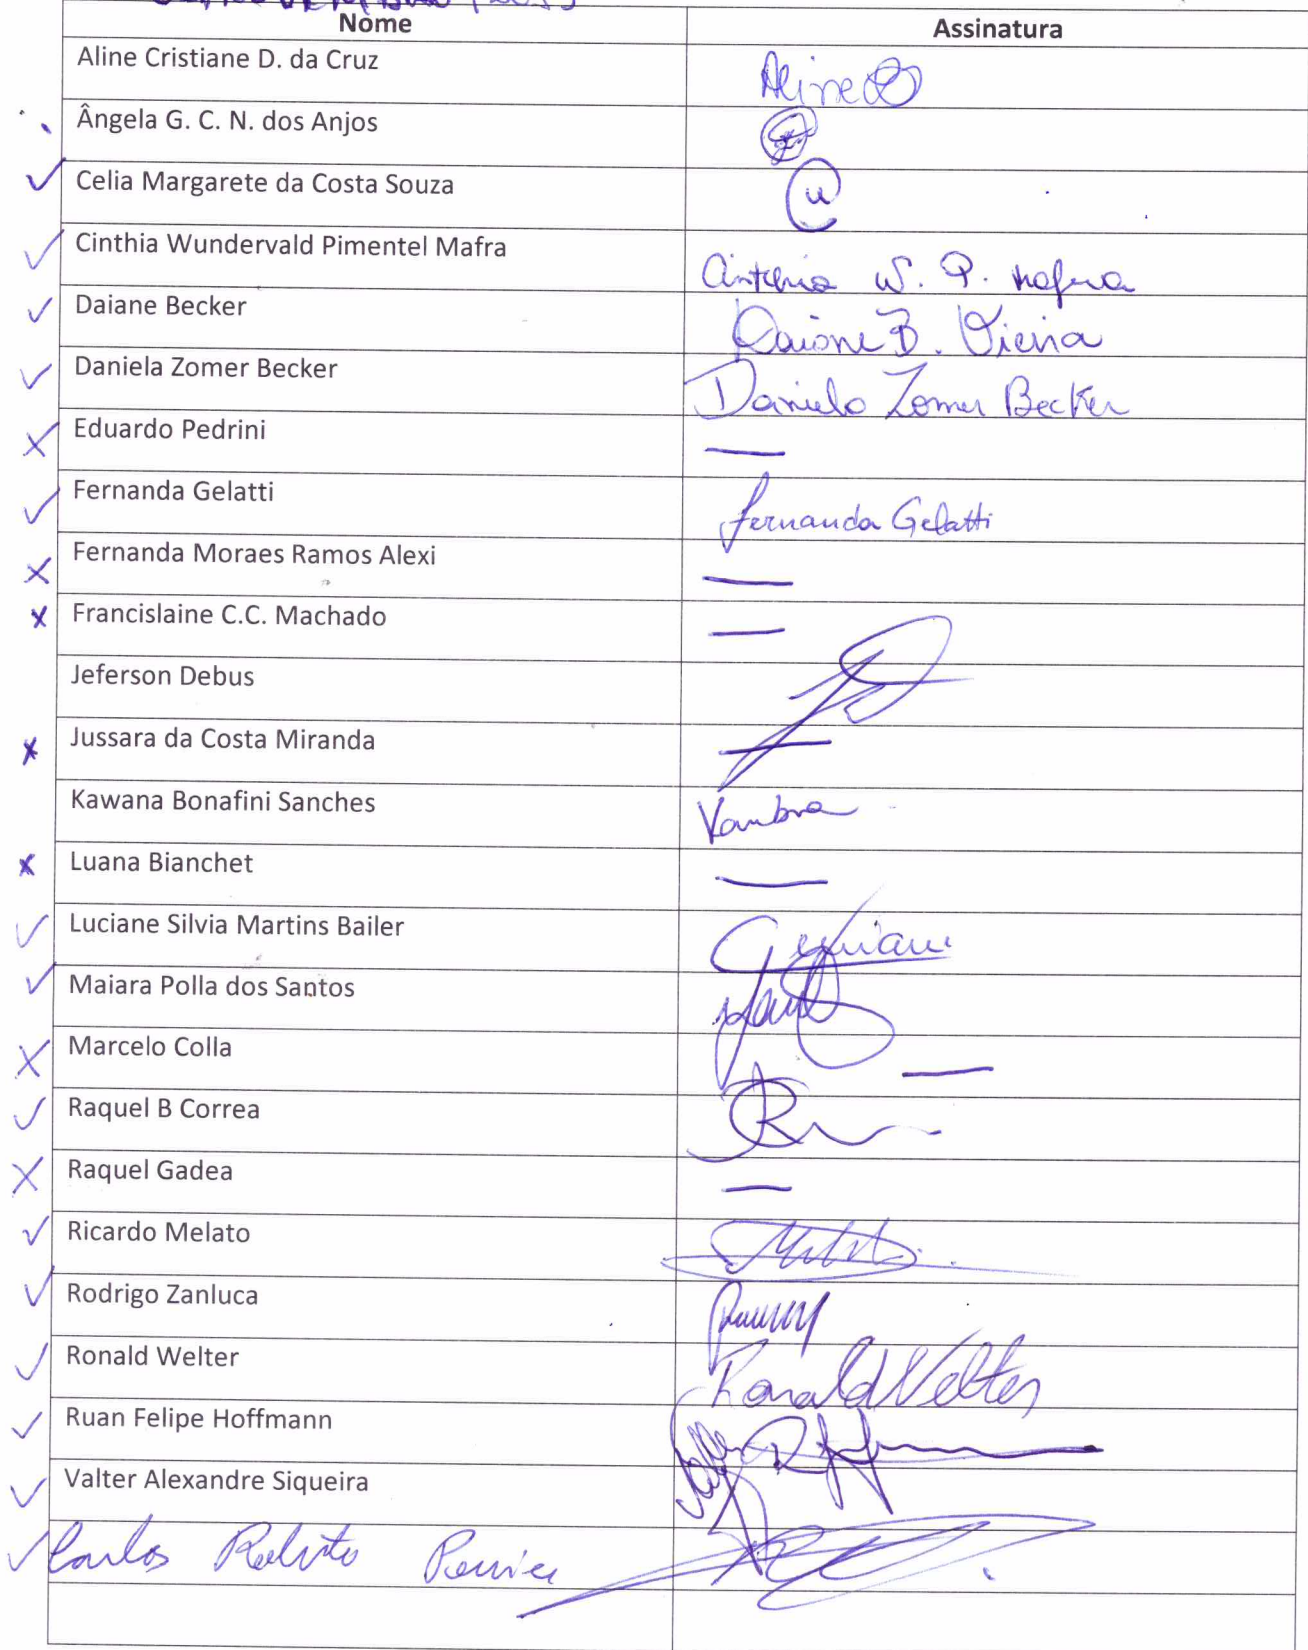 Nome Assinatura
Aline Cristiane D. da Cruz Aline
Ângela G. C. N. dos Anjos
Celia Margarete da Costa Souza
Cinthia Wundervald Pimentel Mafra Cinthia W. P. Mafra
Daiane Becker Daiane B. Vieira
Daniela Zomer Becker Daniela Zomer Becker
Eduardo Pedrini
Fernanda Gelatti Fernanda Gelatti
Fernanda Moraes Ramos Alexi
Francislaine C.C. Machado
Jeferson Debus
Jussara da Costa Miranda
Kawana Bonafini Sanches
Luana Bianchet
Luciane Silvia Martins Bailer
Maiara Polla dos Santos
Marcelo Colla
Raquel B Correa
Raquel Gadea
Ricardo Melato
Rodrigo Zanluca
Ronald Welter Ronald Welter
Ruan Felipe Hoffmann
Valter Alexandre Siqueira
Carlos Roberto Pereira